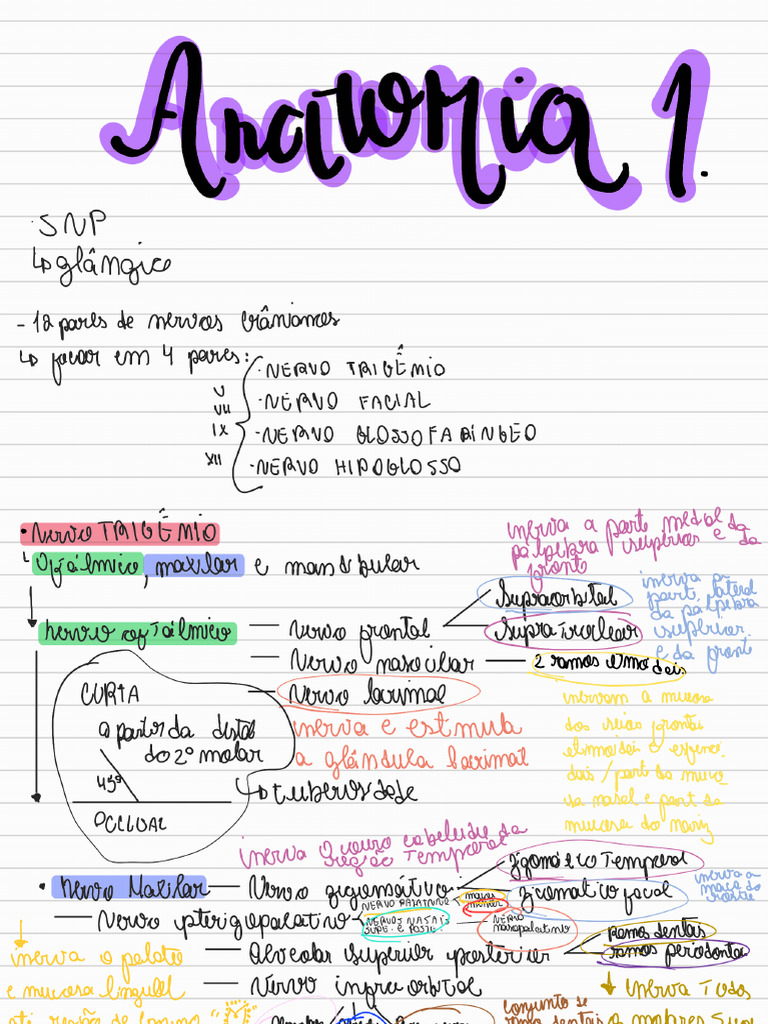 Anatomia 1.
· SNP
↳ glângico
- 12 pares de nervos crânianos
↳ focar em 4 pares:
V · NERVO TRIGÊMIO
VII · NERVO FACIAL
IX · NERVO GLOSSOFARINGEO
XII · NERVO HIPOGLOSSO
• Nervo TRIGÊMIO
↳ Oftálmico, maxilar e mandibular
inerva a parte medial da
palpebra superior e da
fronte
nervo oftálmico — Nervo frontal
Supraorbital
Supratroclear
inerva a
part lateral
da palpebra
superior
e da fronte
— Nervo nasociliar — 2 ramos etmodais
— Nervo larimal
inerva e estimula
a glândula larimal
inervam a mucosa
dos seios frontais
etmoidais e esfenoi
dais / part da muco
sa nasal e part da
mucosa do nariz
CURTA
a partir da distal
do 2º molar
↳ tuberosdade
45º
OCLUSAL
inerva o couro cabeludo da
região Temporal
• Nervo Maxilar — Nervo zigomático
zigomático Temporal
zigomatico facial
inerva a
— Nervo pterigopalatino
NERVO PALATINO
maior
menor
NERVOS NASAIS
NERVO
nasopalatino
— Alveolar superior posterior
Ramos dentais
ramos periodontais
— Nervo infraorbital
inerva o palato
e mucosa lingual
↓ inerva Todos
conjunto de